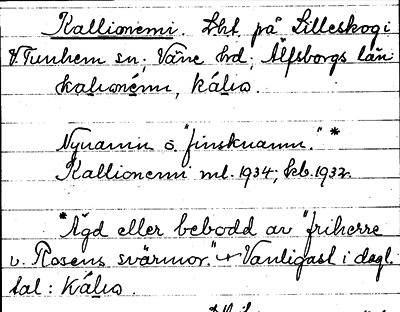 Kallioniemi. Lht på Lilleskog i
V. Tunhem sn; Väne hd; Älfsborgs län
kaliωnémi, káliω.
Nynamn o. "finsknamn." *
Kallioniemi ml. 1934; skb. 1932
* Ägd eller bebodd av "friherre
v. Rosens svärmor." Vanligast i dagl.
tal: káliω.